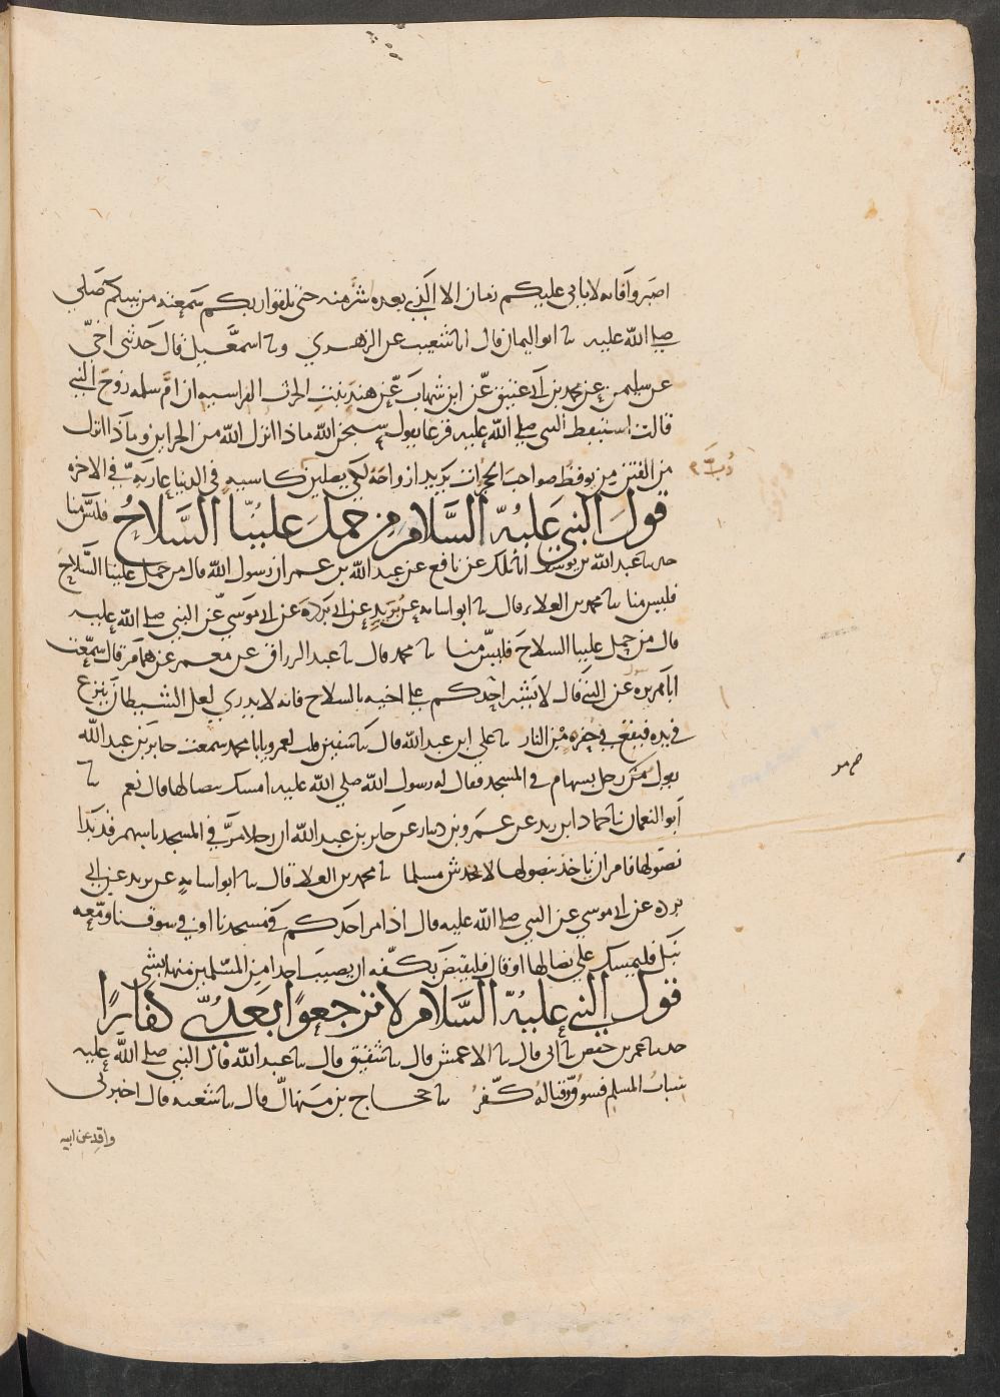 اصبروا فانه لا ياتي عليكم زمان الا الذي بعده شر منه حتى تلقوا ربكم سمعته من نبيكم صلى
صلى الله عليه نا ابو اليمان قال انا شعيب عن الزهري ونا اسمعيل قال حدثني اخي
عن سليمن عن محمد بن ابي عتيق عن ابن شهاب عن هند بنت الحرث الفراسيه ان ام سلمه زوج النبي
قالت استيقظ النبي صلى الله عليه فزعا يقول سبحن الله ماذا انزل الله من الخزاين وماذا انزل
من الفتن من يوقظ صواحب الحجرات يريد ازواجه لكي يصلين كاسيه في الدنيا عاريه في الاخره
قول النبي عليه السلام من حمل علينا السلاح فليس منا
حدنا عبد الله بن يوسف انا ملك عن نافع عن عبد الله بن عمر ان رسول الله قال من حمل علينا السلاح
فليس منا نا محمد بن العلاء قال نا ابو اسامه عن بريد عن ابي برده عن ابي موسي عن النبي صلى الله عليه
قال من حمل علينا السلاح فليس منا نا محمد قال نا عبد الرزاق عن معمر عن همام قال سمعت
ابا هريره عن النبي قال لا يشير احدكم على اخيه بالسلاح فانه لا يدري لعل الشيطان ينزع
في يده فيقع في حفره من النار نا علي ابن عبد الله قال نا سفين قلت لعمرو يابا محمد سمعت جابر بن عبد الله
يقول مر رجل بسهام في المسجد فقال له رسول الله صلي الله عليه امسك بنصالها قال نعم نا
ابو النعمان نا حماد ابن زيد عن عمرو بن دينار عن جابر بن عبد الله ان رجلا مر في المسجد باسهم قد بدا
نصولها فامر ان ياخذ بنصولها لا يخدش مسلما نا محمد بن العلا قال نا ابو اسامه عن بريد عن ابي
برده عن ابي موسي عن النبي صلى الله عليه قال اذا مر احدكم في مسجدنا او في سوقنا ومعه
نبل فليمسك علي نصالها او قال فليقبض بكفه ان يصيب احدا من المسلمين منها بشي
قول النبي عليه السلام لا ترجعوا بعدي كفارا
حدنا عمر بن حفص نا ابي قال نا الاعمش قال نا شقيق قال نا عبد الله قال النبي صلى الله عليه
سباب المسلم فسوق وقتاله كفر نا حجاج بن منهال قال نا شعبه قال اخبرني
واقد عن ابيه